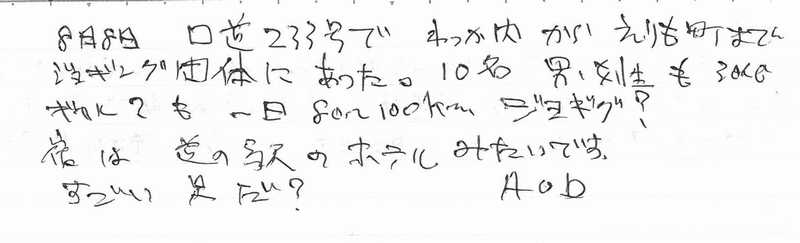 8月8日 口道233号で わっか内 から えりも町まで
ジョギング団体に あった。10名 男、女性も 30代
でも 一日 80〜100km ジョギング?
宿は 道の駅の ホテル みたいです。
すごい 足だ?
A O D